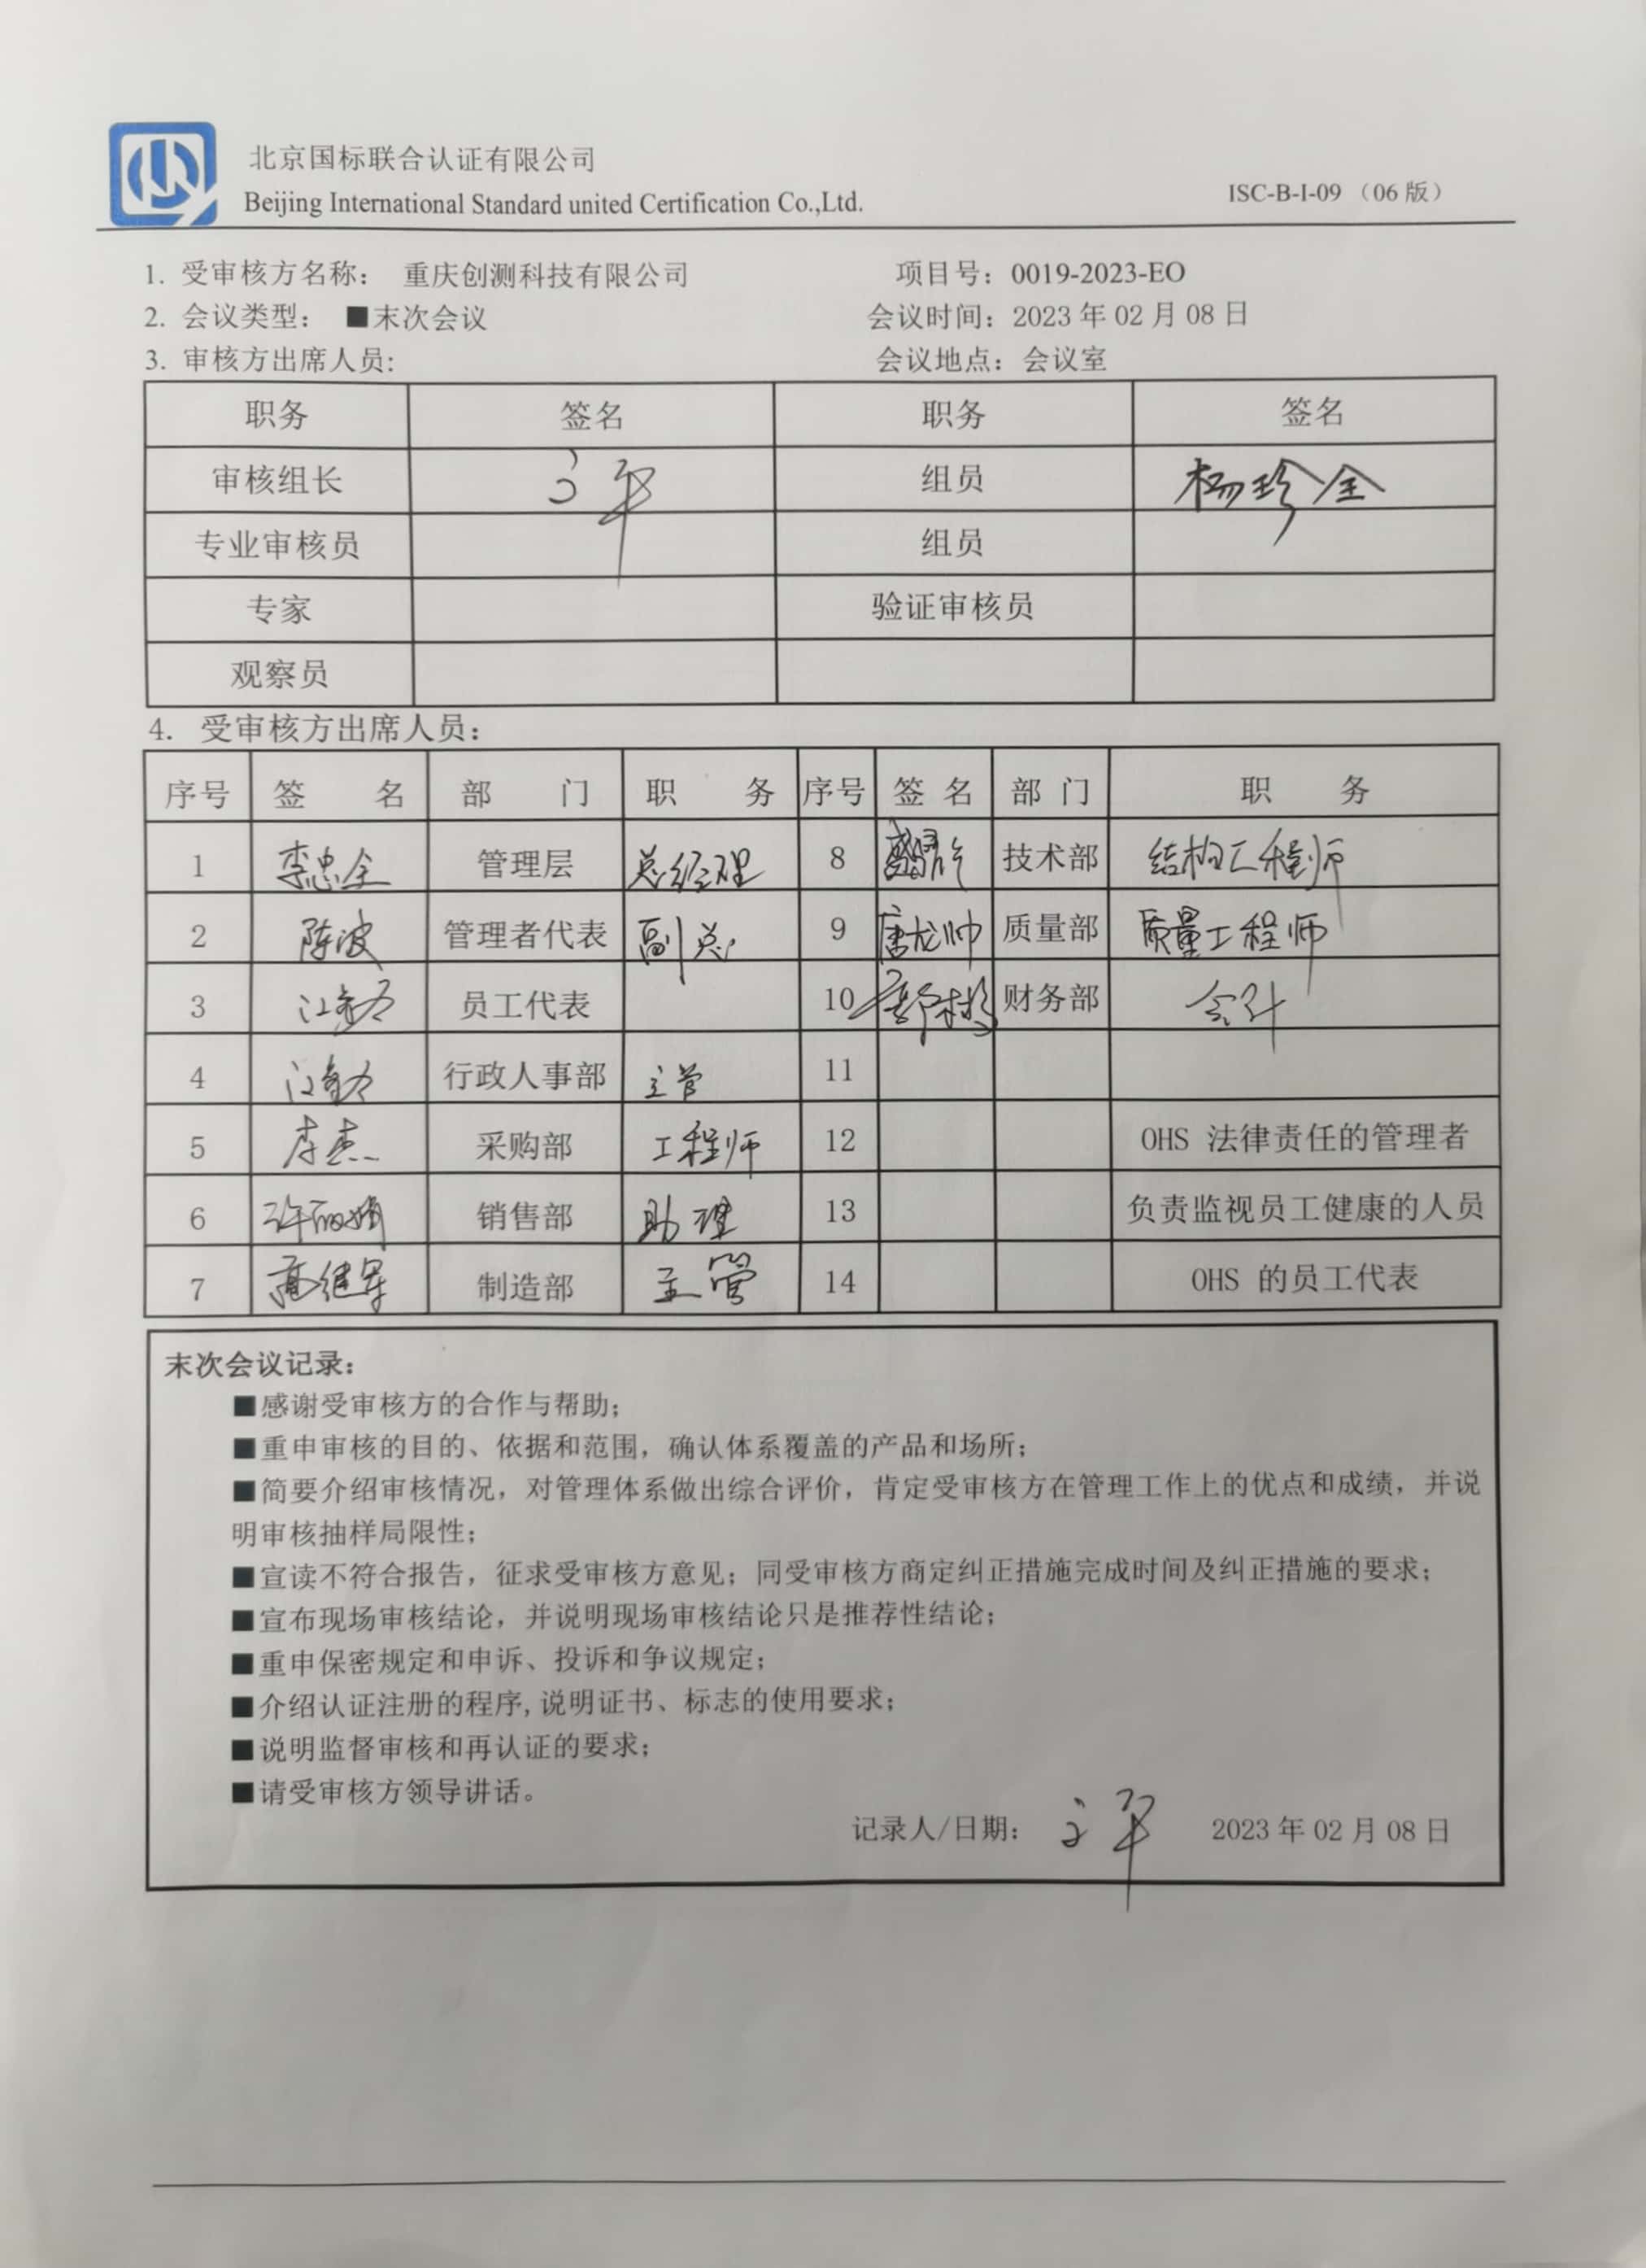 北京国标联合认证有限公司
Beijing International Standard united Certification Co.,Ltd.
ISC-B-I-09 （06 版）
1. 受审核方名称： 重庆创测科技有限公司 项目号：0019-2023-EO
2. 会议类型： ■末次会议 会议时间：2023 年 02 月 08 日
3. 审核方出席人员: 会议地点：会议室
职务 签名 职务 签名
审核组长 组员 杨珍全
专业审核员 组员
专家 验证审核员
观察员
4. 受审核方出席人员：
序号 签 名 部 门 职 务 序号 签 名 部 门 职 务
1 李忠全 管理层 总经理 8 技术部 结构工程师
2 陈波 管理者代表 副总 9 唐龙帅 质量部 质量工程师
3 员工代表 10 财务部 会计
4 行政人事部 主管 11
5 李杰 采购部 工程师 12 OHS 法律责任的管理者
6 许丽娟 销售部 助理 13 负责监视员工健康的人员
7 高继军 制造部 主管 14 OHS 的员工代表
末次会议记录：
■感谢受审核方的合作与帮助；
■重申审核的目的、依据和范围，确认体系覆盖的产品和场所；
■简要介绍审核情况，对管理体系做出综合评价，肯定受审核方在管理工作上的优点和成绩，并说
明审核抽样局限性；
■宣读不符合报告，征求受审核方意见；同受审核方商定纠正措施完成时间及纠正措施的要求；
■宣布现场审核结论，并说明现场审核结论只是推荐性结论；
■重申保密规定和申诉、投诉和争议规定；
■介绍认证注册的程序,说明证书、标志的使用要求；
■说明监督审核和再认证的要求；
■请受审核方领导讲话。
记录人/日期： 2023 年 02 月 08 日